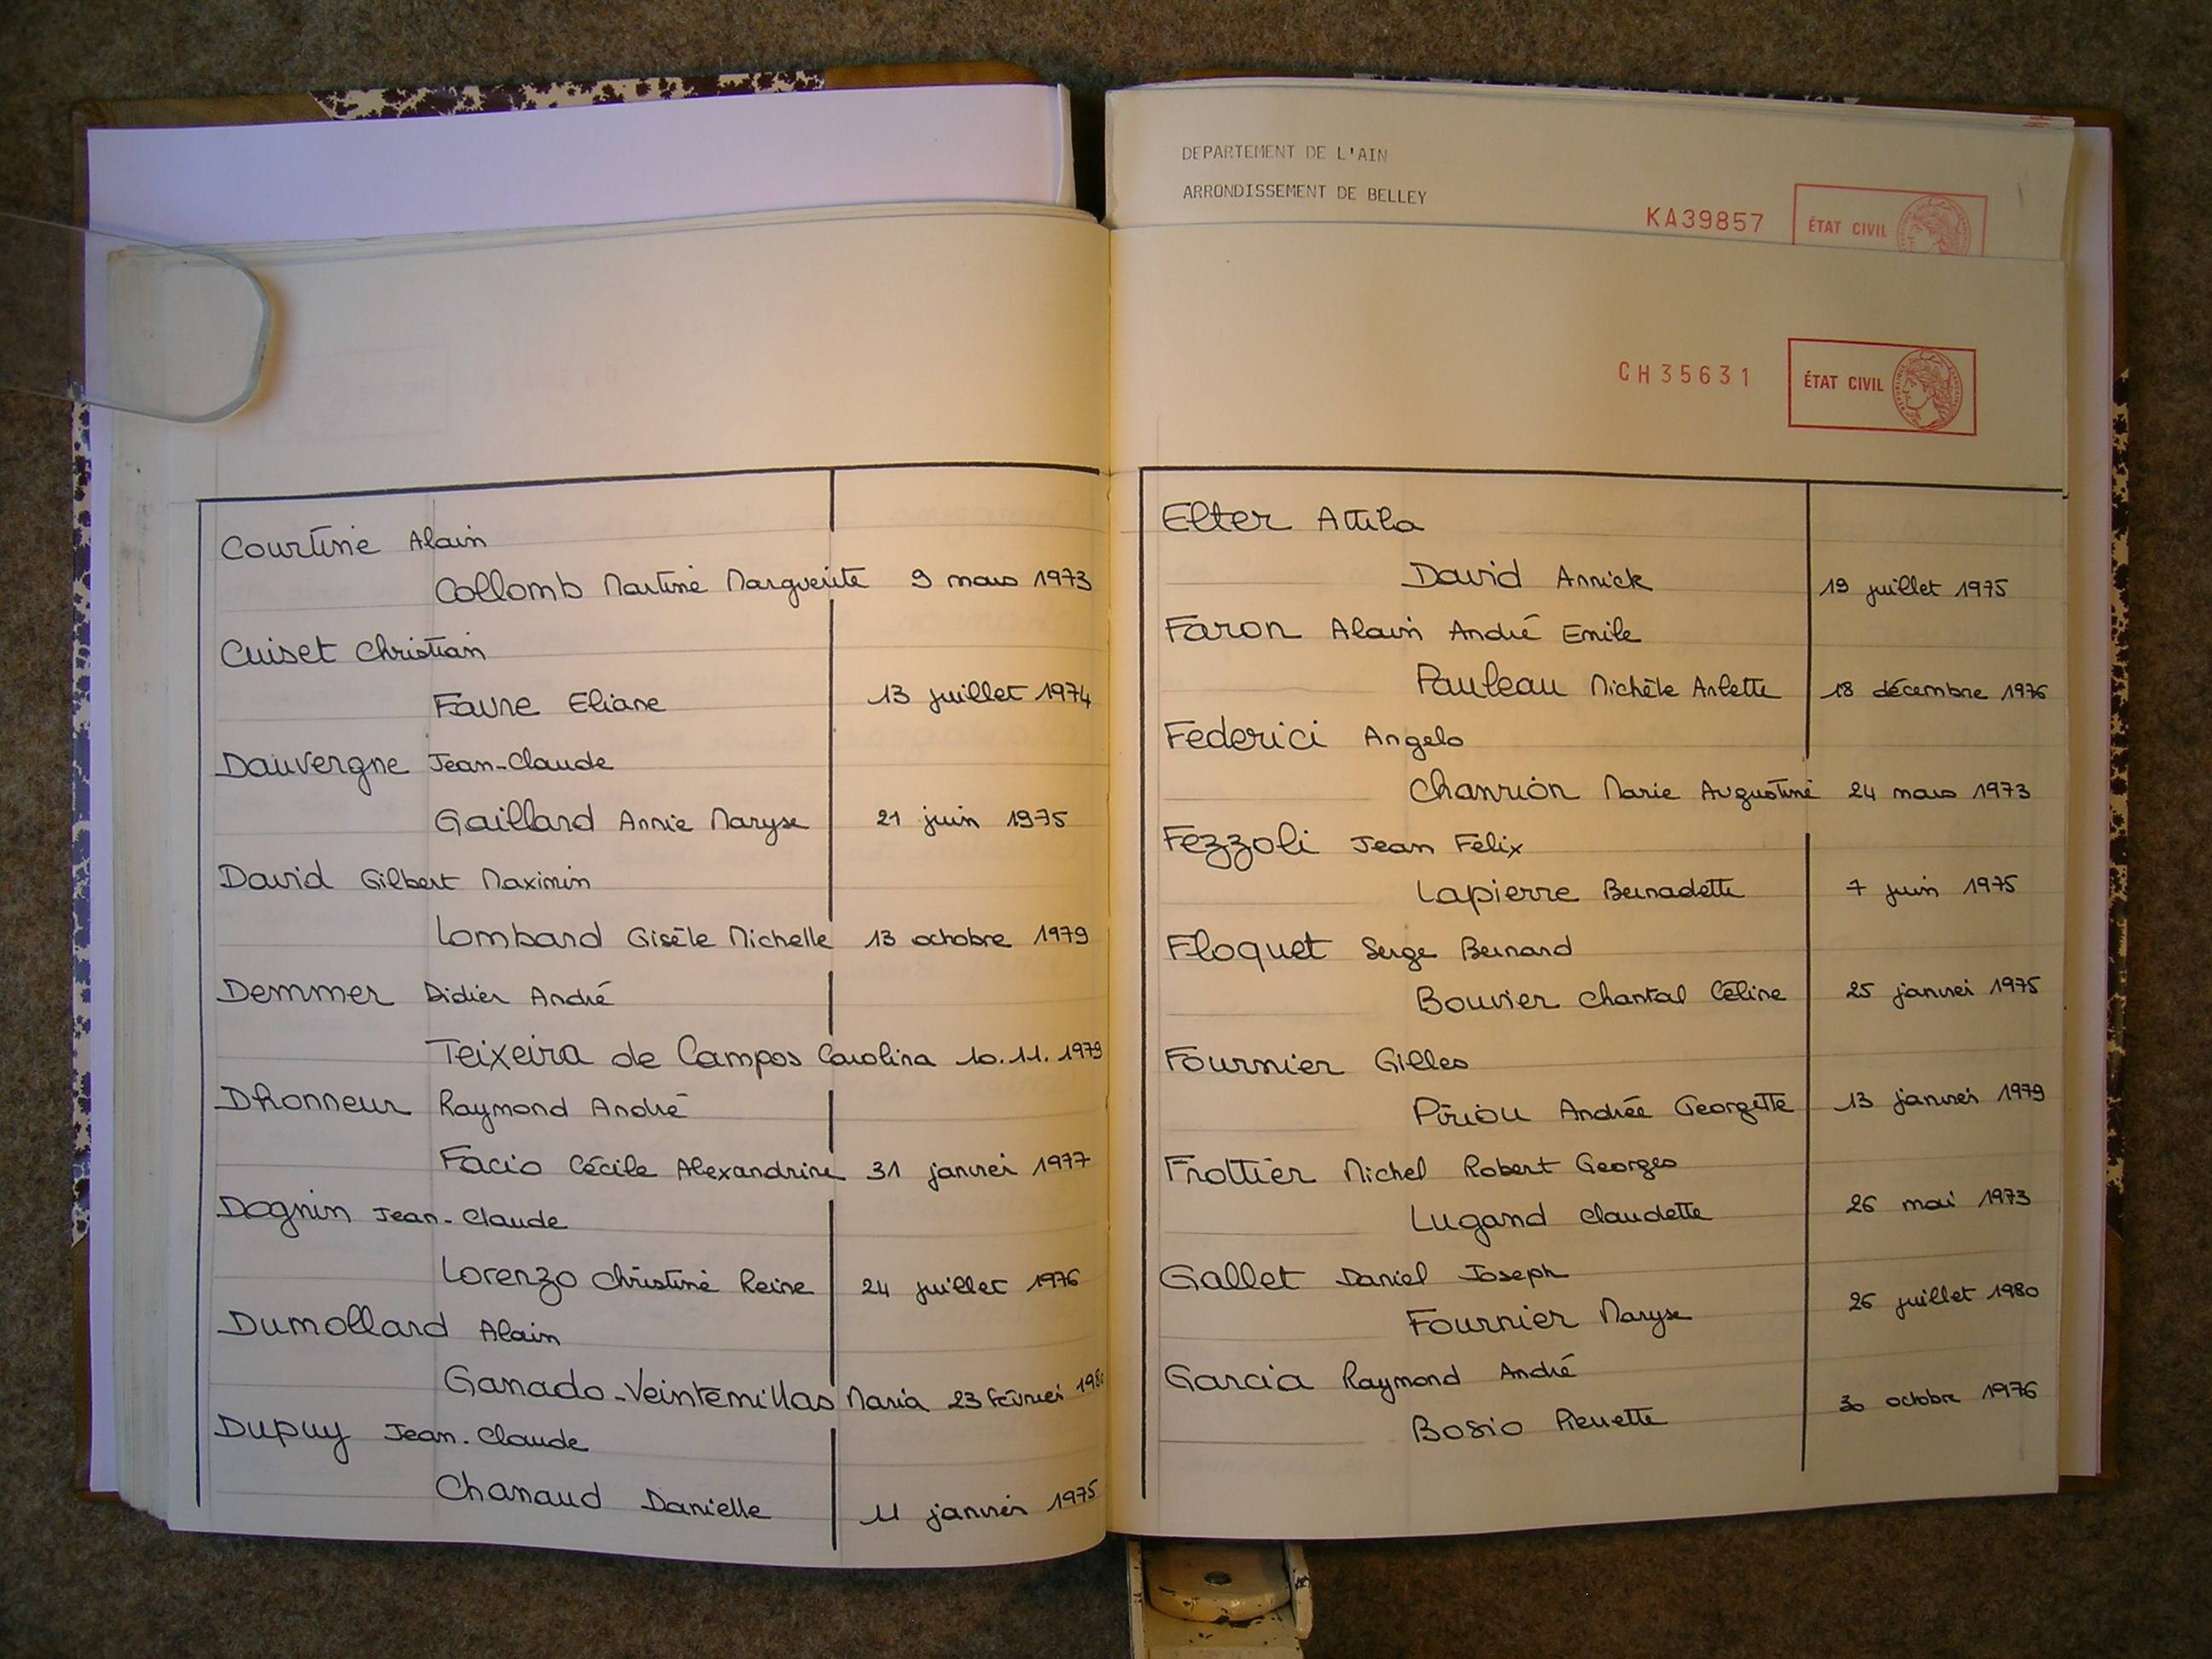 Courtine Alain
Collomb Martine Marguerite 9 mars 1973
Cuiset Christian
Favre Eliane 13 juillet 1974
Dauvergne Jean-Claude
Gaillard Annie Maryse 21 juin 1975
David Gilbert Maximin
Lombard Gisèle Michelle 13 octobre 1979
Demmer Didier André
Teixeira de Campos Carolina 10.11.1979
Dhonneur Raymond André
Facio Cécile Alexandrine 31 janvier 1977
Dognin Jean-Claude
Lorenzo Christine Reine 24 juillet 1976
Dumollard Alain
Ganado-Veintemillas Maria 23 février
Dupuy Jean-Claude
Chanaud Danielle 11 janvier 1975
DEPARTEMENT DE L'AIN
ARRONDISSEMENT DE BELLEY
KA39857 ÉTAT CIVIL
CH35631 ÉTAT CIVIL
Elter Attila
David Annick 19 juillet 1975
Faron Alain André Emile
Pauleau Michèle Arlette 18 décembre 1976
Federici Angelo
Chanrion Marie Augustine 24 mars 1973
Fezzoli Jean Félix
Lapierre Bernadette 7 juin 1975
Floquet Serge Bernard
Bouvier Chantal Céline 25 janvier 1975
Fournier Gilles
Piriou Andrée Georgette 13 janvier 1979
Frottier Michel Robert Georges
Lugand Claudette 26 mai 1973
Gallet Daniel Joseph
Fournier Maryse 26 juillet 1980
Garcia Raymond André
Bosio Pierrette 30 octobre 1976